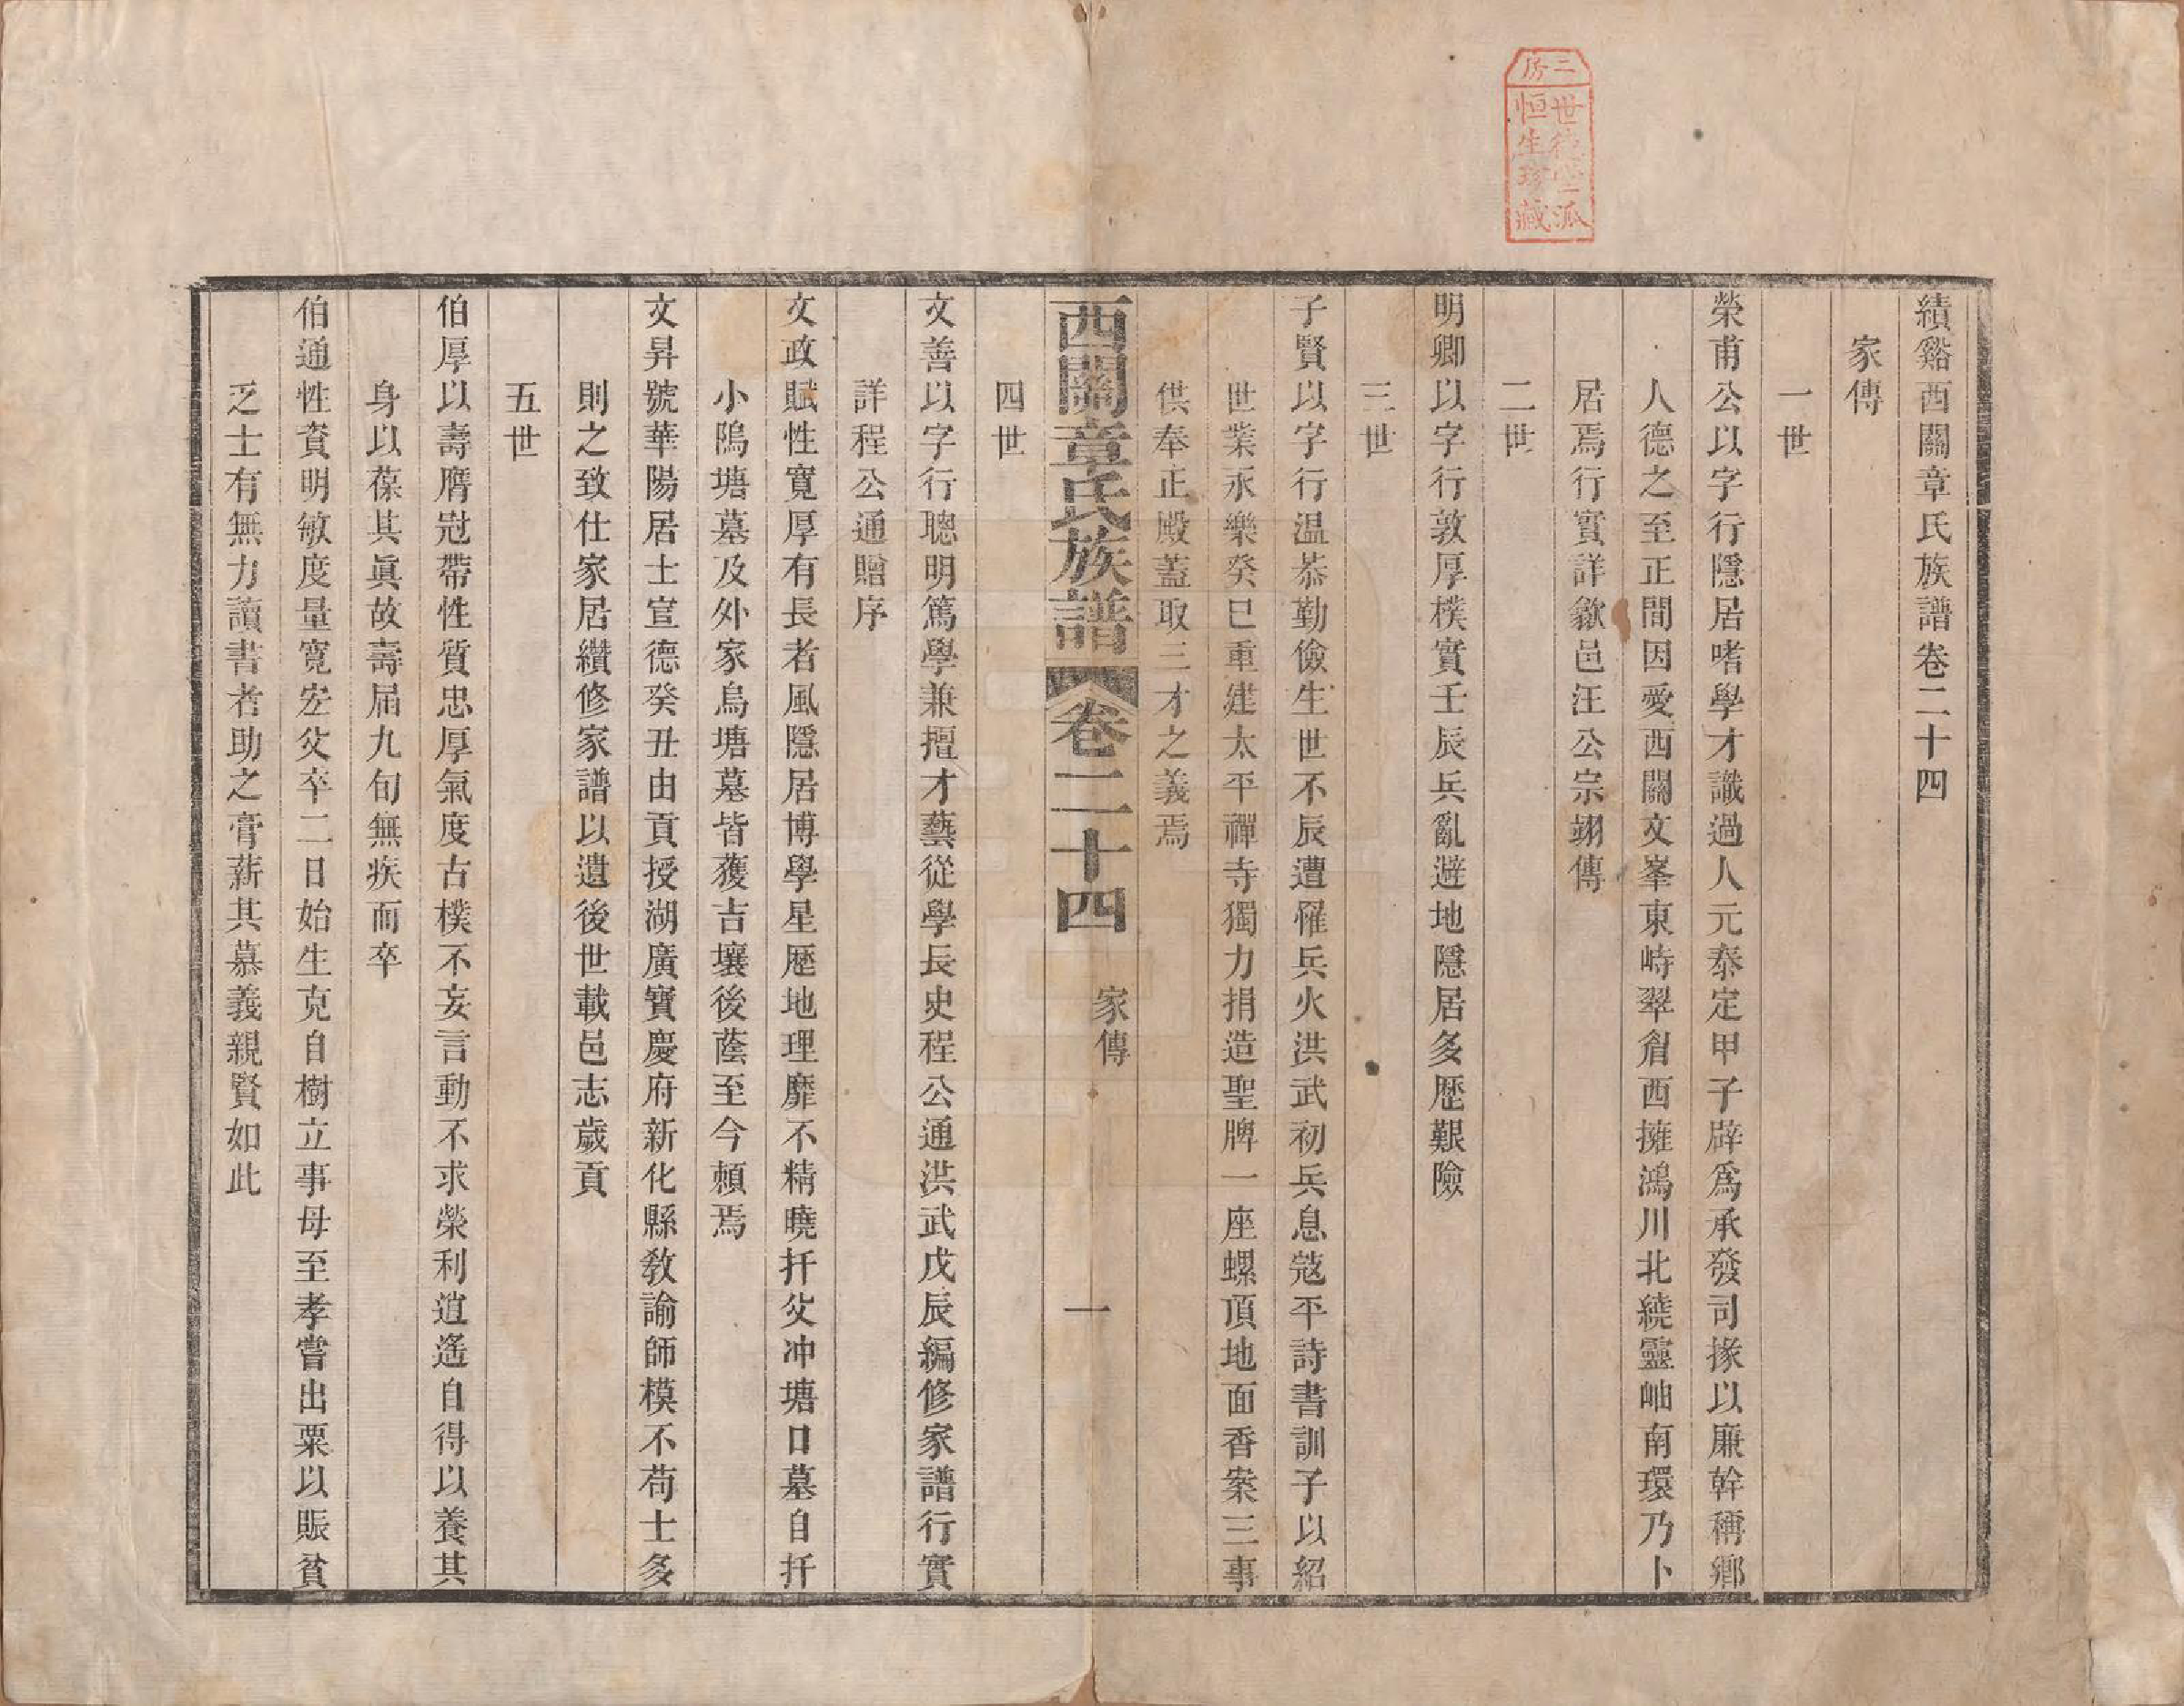 績谿西關章氏族譜卷二十四
家傳
一世
榮甫公以字行隱居嗜學才識過人元泰定甲子辟爲承發司掾以廉幹稱鄉
人德之至正間因愛西關文峯東峙翠眉西擁鴻川北繞靈岫南環乃卜
居焉行實詳歙邑汪公宗翊傳
二世
明卿以字行敦厚樸實壬辰兵亂避地隱居多歷艱險
三世
子賢以字行温恭勤儉生世不辰遭罹兵火洪武初兵息寇平詩書訓子以紹
世業永樂癸巳重建太平禪寺獨力捐造聖牌一座螺頂地面香案三事
供奉正殿蓋取三才之義焉
西關章氏族譜 卷二十四 家傳 一
四世
文善以字行聰明篤學兼擅才藝從學長史程公通洪武戊辰編修家譜行實
詳程公通贈序
文政賦性寬厚有長者風隱居博學星歷地理靡不精曉扦父冲塘口墓自扦
小隝塘墓及外家烏塘墓皆獲吉壤後蔭至今賴焉
文昇號華陽居士宣德癸丑由貢授湖廣寶慶府新化縣敎諭師模不苟士多
則之致仕家居纘修家譜以遺後世載邑志歲貢
五世
伯厚以壽膺冠帶性質忠厚氣度古樸不妄言動不求榮利逍遙自得以養其
身以葆其眞故壽屆九旬無疾而卒
伯通性資明敏度量寬宏父卒二日始生克自樹立事母至孝嘗出粟以賑貧
乏士有無力讀書者助之膏薪其慕義親賢如此
三房
世德
二派
恒生珍藏